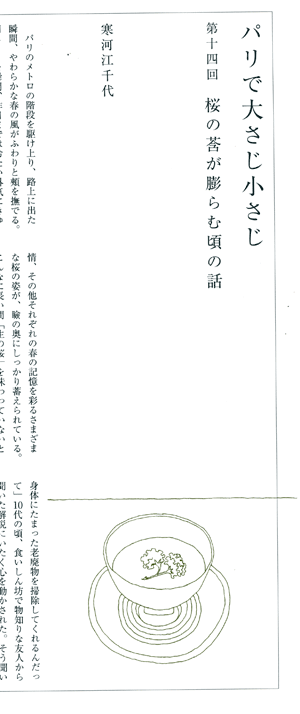 パリで大さじ小さじ
第十四回　桜の莟が膨らむ頃の話
寒河江千代
パリのメトロの階段を駆け上り、路上に出た
瞬間、やわらかな春の風がふわりと頰を撫でる。
情、その他それぞれの春の記憶を彩るさまざま
な桜の姿が、瞼の奥にしっかり蓄えられている。
身体にたまった老廃物を掃除してくれるんだっ
て」10代の頃、食いしん坊で物知りな友人から
聞いた解説にいたく心を動かされた。そう聞い